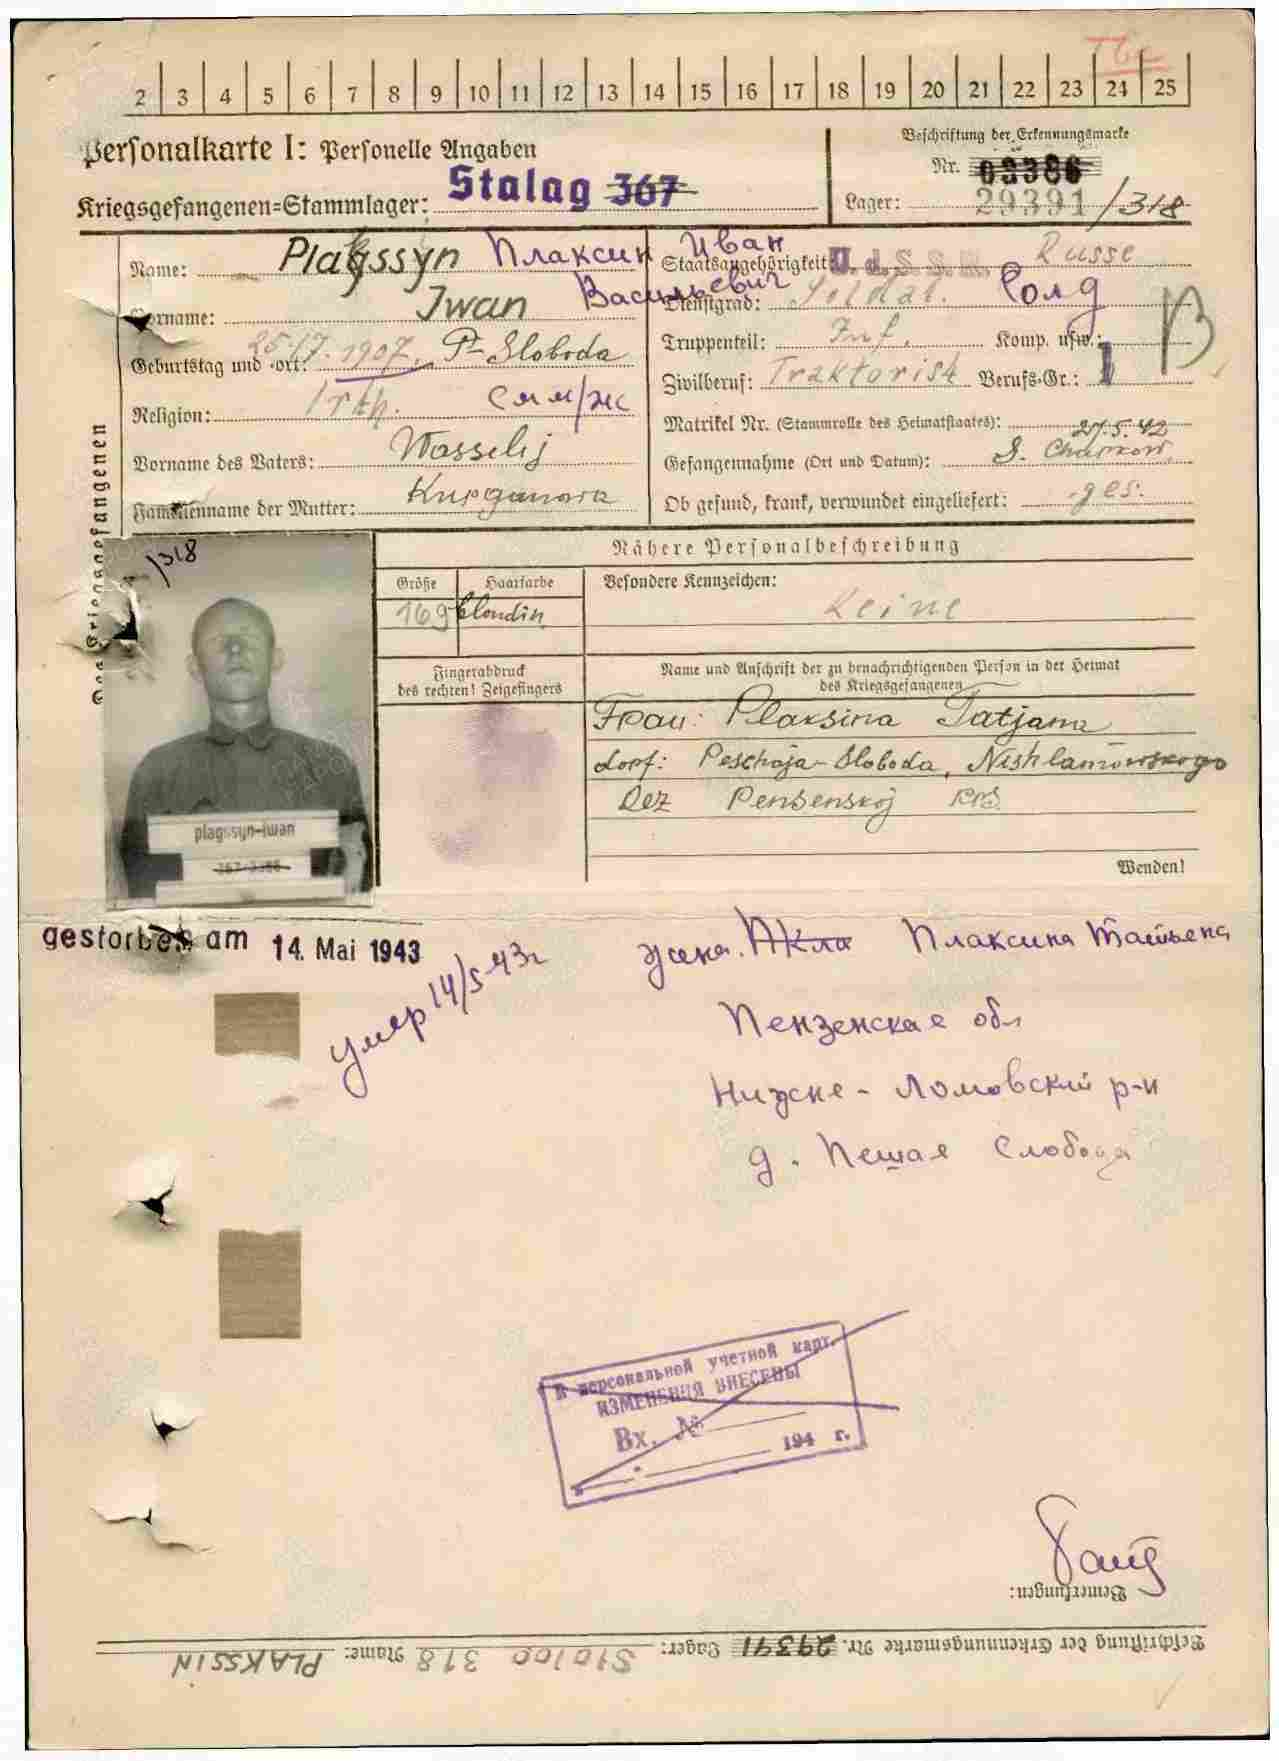 Tbc
2 3 4 5 6 7 8 9 10 11 12 13 14 15 16 17 18 19 20 21 22 23 24 25
Personalkarte I: Personelle Angaben
Kriegsgefangenen=Stammlager: Stalag 367
Beschriftung der Erkennungsmarke
Nr. 03386
Lager: 29391/318
Name: Plagssyn Плаксин Иван
Васильевич
Vorname: Iwan
Geburtstag und -ort: 25.17.1907. P-Sloboda
Religion: rth.
Vorname des Vaters: Wasselij
Familienname der Mutter: Kurganowa
Staatsangehörigkeit: U.d.S.S.R. Russe
Dienstgrad: Soldat. Солд
Truppenteil: Inf. Komp. usw.:
Zivilberuf: Traktorist Berufs-Gr.: 1
Matrikel Nr. (Stammrolle des Heimatstaates):
Gefangennahme (Ort und Datum): 27.5.42
S. Charkow
Ob gesund, krank, verwundet eingeliefert: ges.
Des Kriegsgefangenen
/318
plagssyn-iwan
367-3386
Nähere Personalbeschreibung
Größe Haarfarbe Besondere Kennzeichen:
169 blondin Keine
Fingerabdruck
des rechten! Zeigefingers
Name und Anschrift der zu benachrichtigenden Person in der Heimat
des Kriegsgefangenen
Frau: Plaksina Tatjana
dorf: Peschaja-Sloboda, Nishlamowskogo
Pensenskoj
Wenden!
gestorben am 14. Mai 1943
умер 14/5 43г
жена. Плаксина Татьяна
Пензенская обл
Нижне-Ломовский р-н
д. Пешая Слобода
В персональной учетной карт.
ИЗМЕНЕНИЯ ВНЕСЕНЫ
Вх. №
194 г.
Bemerkungen:
Beschriftung der Erkennungsmarke Nr. 29391 Lager: Stalag 318 Name: PLAKSSIN